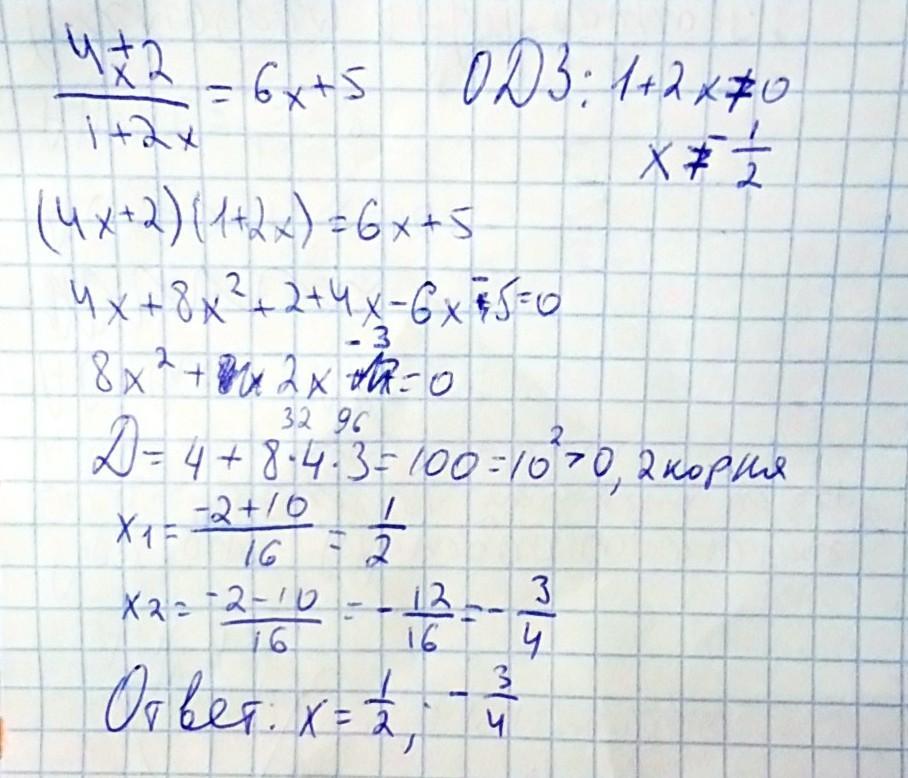 (4x+2)/(1+2x) = 6x+5 ОДЗ: 1+2x≠0
x≠-1/2
(4x+2)(1+2x)=6x+5
4x+8x²+2+4x-6x-5=0
8x²+2x-3=0
32 96
D=4+8·4·3=100=10²>0, 2 корня
x1=(-2+10)/16=1/2
x2=(-2-10)/16=-12/16=-3/4
Ответ: x=1/2; -3/4